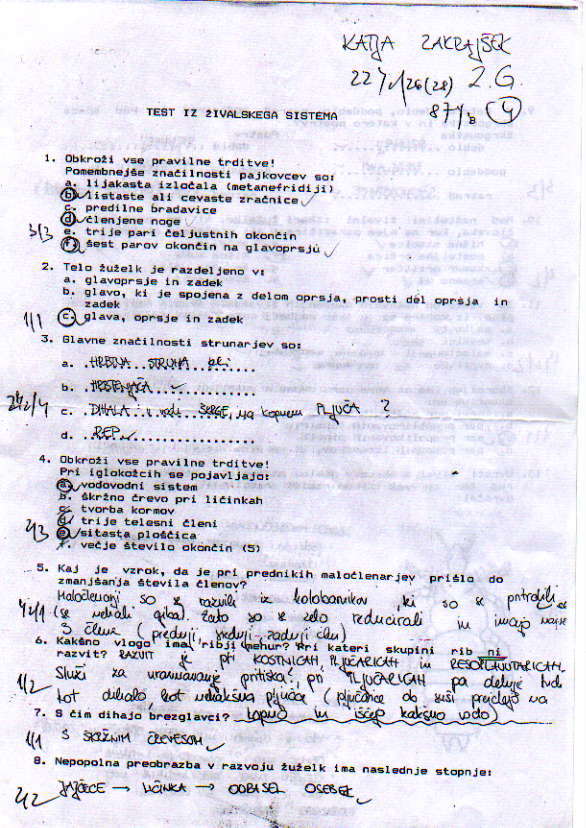 KATJA ZAKRAJŠEK
22 ½/26(28) 2.G.
87% (4)
TEST IZ ŽIVALSKEGA SISTEMA
1. Obkroži vse pravilne trditve!
Pomembnejše značilnosti pajkovcev so:
a. lijakasta izločala (metanefridiji)
b. listaste ali cevaste zračnice
c. predilne bradavice
d. členjene noge
e. trije pari čeljustnih okončin
3/3 f. šest parov okončin na glavoprsju
2. Telo žuželk je razdeljeno v:
a. glavoprsje in zadek
b. glavo, ki je spojena z delom oprsja, prosti del oprsja in
zadek
1/1 c. glava, oprsje in zadek
3. Glavne značilnosti strunarjev so:
a. HRBTNA STRUNA
b. HRBTENJAČA
c. DIHALA: v vodi ŠKRGE, na kopnem PLJUČA ?
d. REP
4. Obkroži vse pravilne trditve!
Pri iglokožcih se pojavljajo:
a. vodovodni sistem
b. škržno črevo pri ličinkah
c. tvorba kormov
d. trije telesni členi
e. sitasta ploščica
f. večje število okončin (5)
5. Kaj je vzrok, da je pri prednikih maločlenarjev prišlo do
zmanjšanja števila členov?
Maločlenarji so se razvili iz kolobarnikov, ki so se pritrdili
(se nehali gibati). Zato so se zelo reducirali in imajo
3 člene (prednji, srednji, zadnji člen)
6. Kakšno vlogo ima ribji mehur? Pri kateri skupini rib ni
razvit? RAZVIT je pri KOSTNICAH, PLJUČARICAH in RESOPLAVUTARICAH.
Služi za uravnavanje pritiska, pri PLJUČARICAH pa deluje tudi
1/2 kot dihalo, kot nekakšna pljuča (pljučarice ob suši prilezejo na
kopno in iščejo kakšno vodo)
7. S čim dihajo brezglavci?
1/1 S ŠKRŽNIM ČREVESOM
8. Nepopolna preobrazba v razvoju žuželk ima naslednje stopnje:
JAJČECE → LIČINKA → ODRASEL OSEBEK